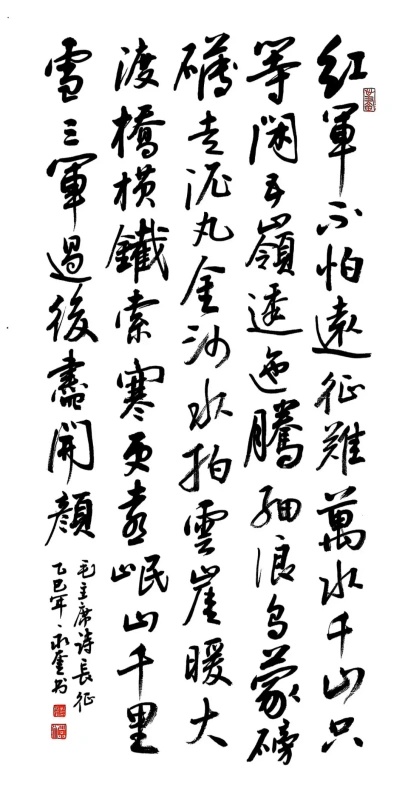 紅軍不怕遠征難萬水千山只
等閑五嶺逶迤騰細浪烏蒙磅
礴走泥丸金沙水拍雲崖暖大
渡橋横鐵索寒更喜岷山千里
雪三軍過後盡開顔
毛主席诗長征
乙巳年永奎书